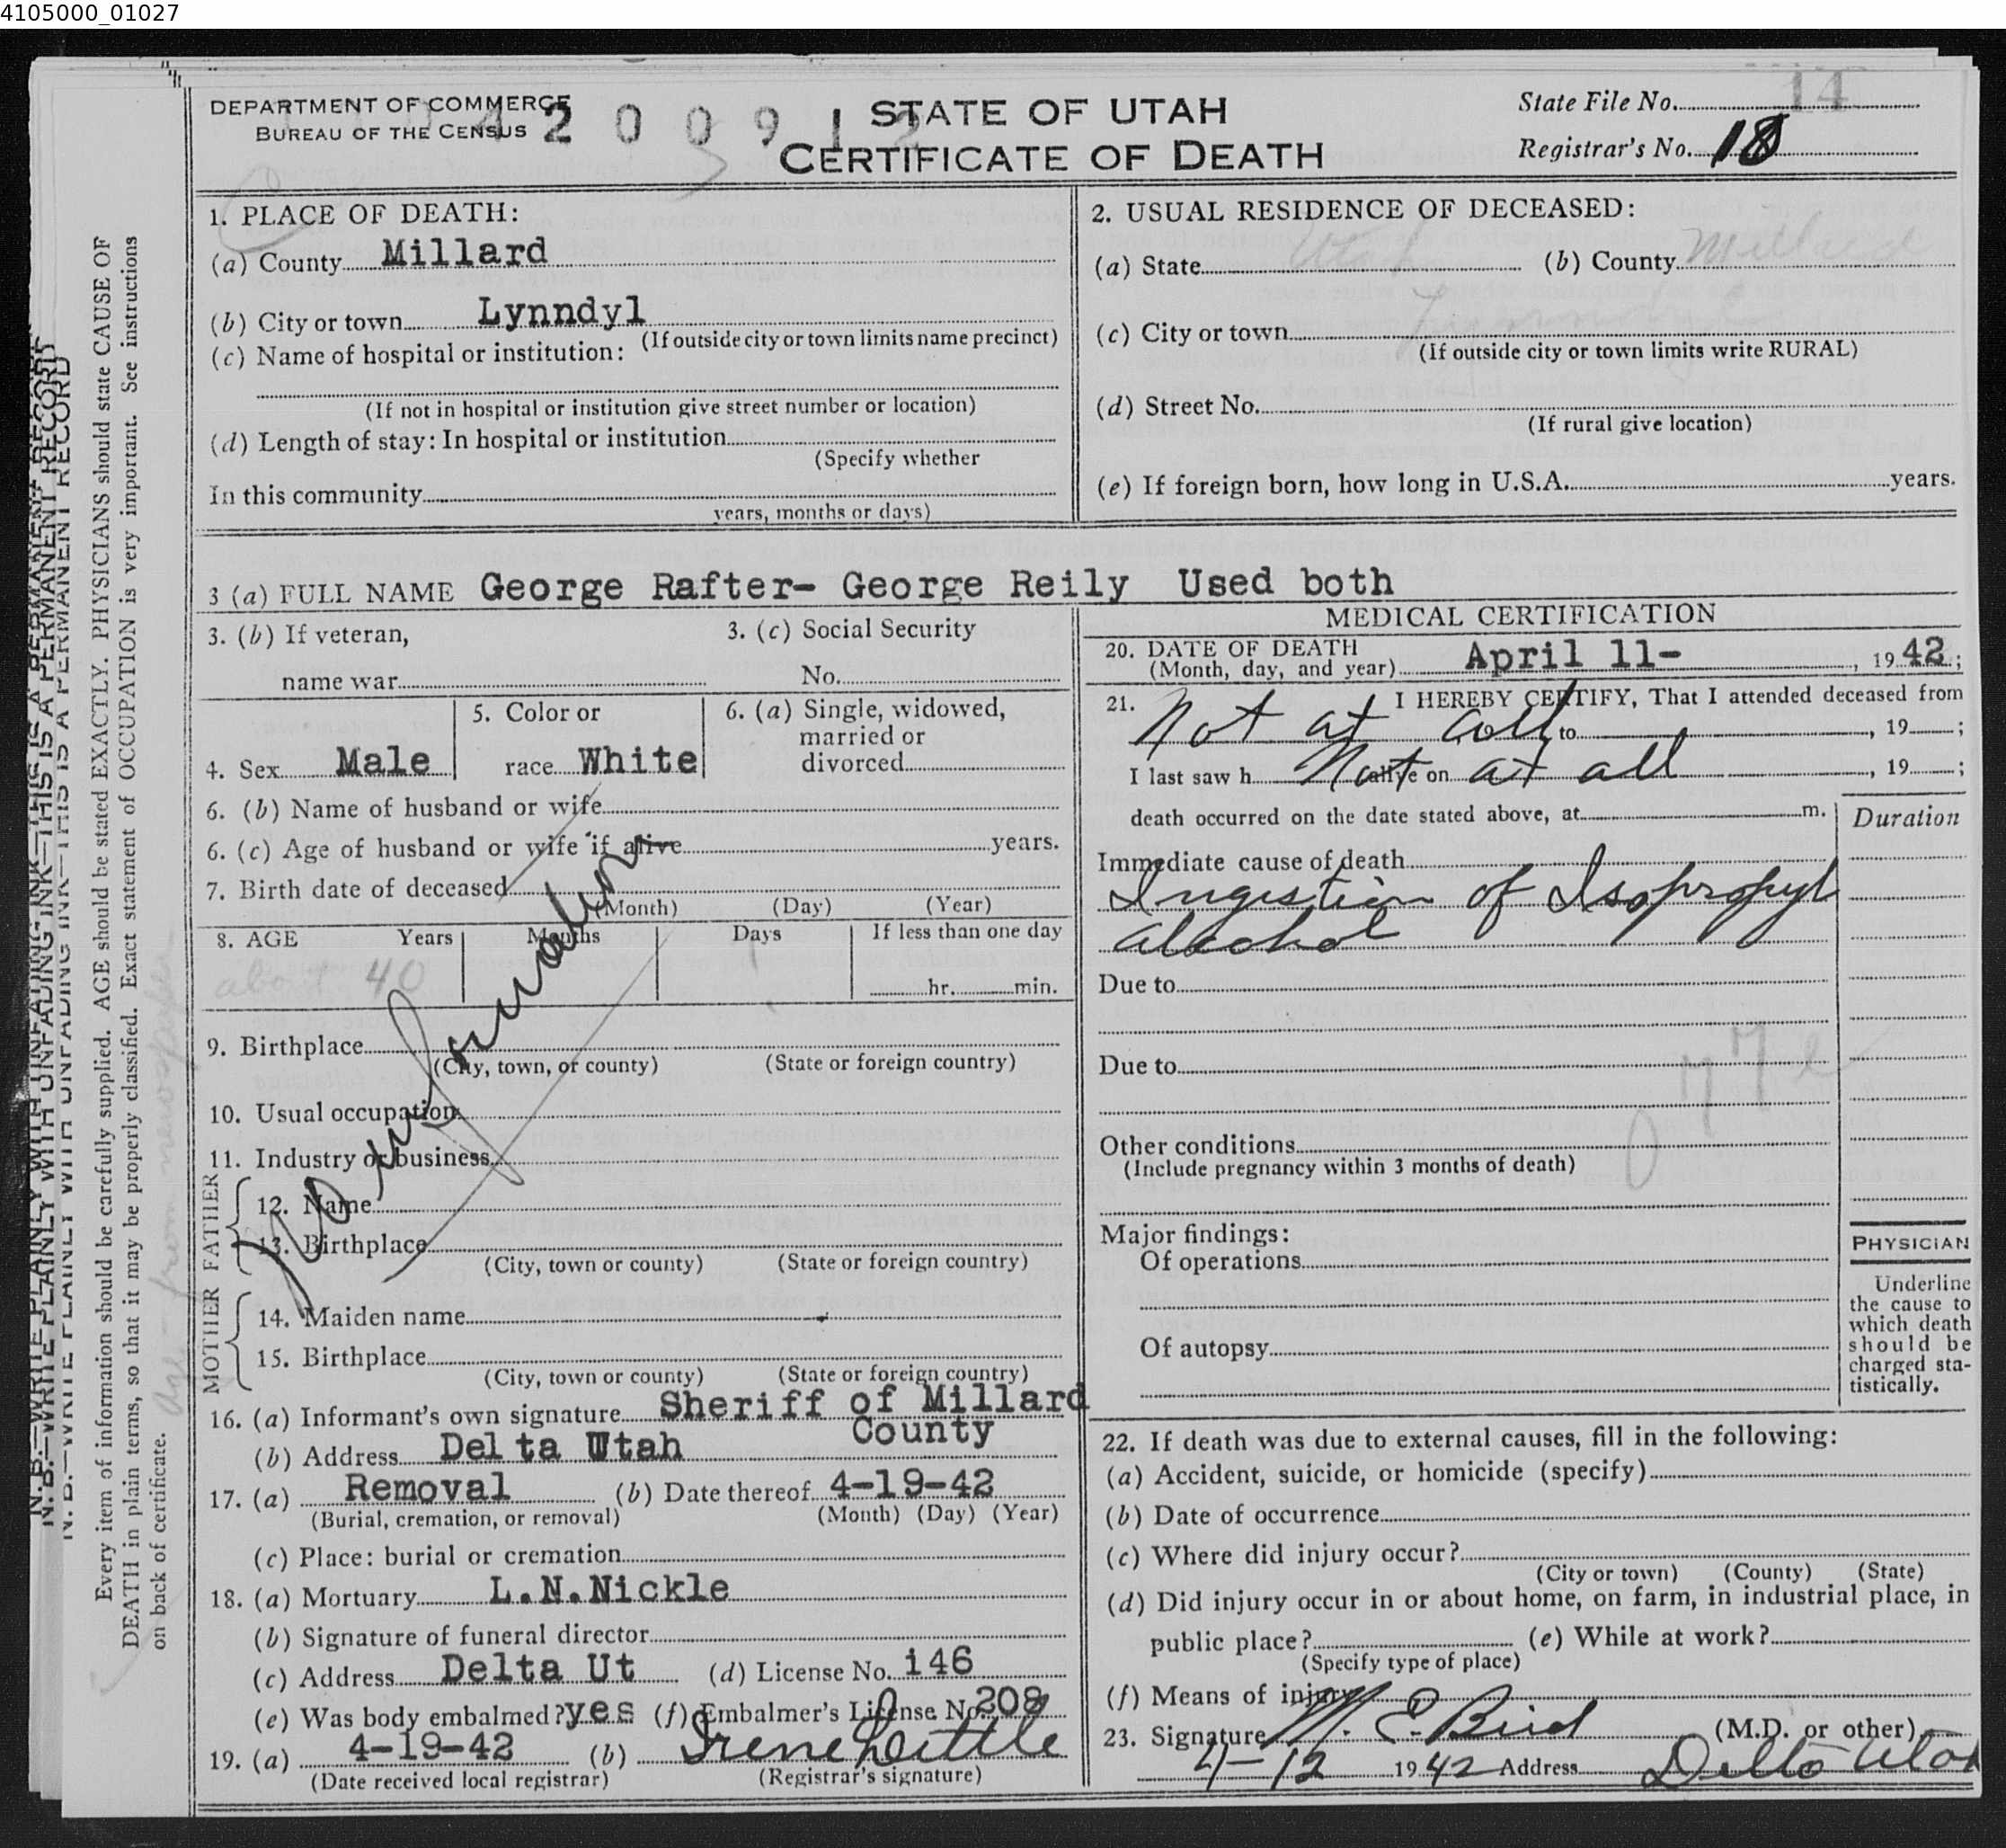 4105000_01027
DEPARTMENT OF COMMERCE
BUREAU OF THE CENSUS
2 0 0 9 1 2
STATE OF UTAH
CERTIFICATE OF DEATH
State File No. 14
Registrar's No. 18
1. PLACE OF DEATH:
(a) County Millard
(b) City or town Lynndyl
(If outside city or town limits name precinct)
(c) Name of hospital or institution:
(If not in hospital or institution give street number or location)
(d) Length of stay: In hospital or institution
(Specify whether
In this community
years, months or days)
2. USUAL RESIDENCE OF DECEASED:
(a) State Utah (b) County Millard
(c) City or town
(If outside city or town limits write RURAL)
(d) Street No.
(If rural give location)
(e) If foreign born, how long in U.S.A. years.
3 (a) FULL NAME George Rafter- George Reily Used both
3. (b) If veteran,
name war
3. (c) Social Security
No.
4. Sex Male
5. Color or
race White
6. (a) Single, widowed,
married or
divorced
6. (b) Name of husband or wife
6. (c) Age of husband or wife if alive years.
7. Birth date of deceased
(Month) (Day) (Year)
8. AGE Years Months Days If less than one day
about 40
hr. min.
9. Birthplace
(City, town, or county) (State or foreign country)
10. Usual occupation
11. Industry or business
No Information
FATHER
12. Name
13. Birthplace
(City, town or county) (State or foreign country)
MOTHER
14. Maiden name
15. Birthplace
(City, town or county) (State or foreign country)
16. (a) Informant's own signature Sheriff of Millard
County
(b) Address Delta Utah
17. (a) Removal (b) Date thereof 4-19-42
(Burial, cremation, or removal) (Month) (Day) (Year)
(c) Place: burial or cremation
18. (a) Mortuary L.N.Nickle
(b) Signature of funeral director
(c) Address Delta Ut (d) License No. 146
(e) Was body embalmed? yes (f) Embalmer's License No. 208
19. (a) 4-19-42 (b) Irene Lettle
(Date received local registrar) (Registrar's signature)
MEDICAL CERTIFICATION
20. DATE OF DEATH
(Month, day, and year) April 11- , 1942;
21. I HEREBY CERTIFY, That I attended deceased from
Not at all to , 19 ;
I last saw h alive on Not at all , 19 ;
death occurred on the date stated above, at m.
Duration
Immediate cause of death
Ingestion of Isopropyl
alcohol
Due to
Due to
077e
Other conditions
(Include pregnancy within 3 months of death)
Major findings:
Of operations
Of autopsy
PHYSICIAN
Underline
the cause to
which death
should be
charged sta-
tistically.
22. If death was due to external causes, fill in the following:
(a) Accident, suicide, or homicide (specify)
(b) Date of occurrence
(c) Where did injury occur?
(City or town) (County) (State)
(d) Did injury occur in or about home, on farm, in industrial place, in
public place? (e) While at work?
(Specify type of place)
(f) Means of injury
23. Signature M. E. Bird (M.D. or other)
4-12 1942 Address Delta Utah
N. B.—WRITE PLAINLY WITH UNFADING INK—THIS IS A PERMANENT RECORD
Every item of information should be carefully supplied. AGE should be stated EXACTLY. PHYSICIANS should state CAUSE OF
DEATH in plain terms, so that it may be properly classified. Exact statement of OCCUPATION is very important. See instructions
on back of certificate.
Age from newspaper